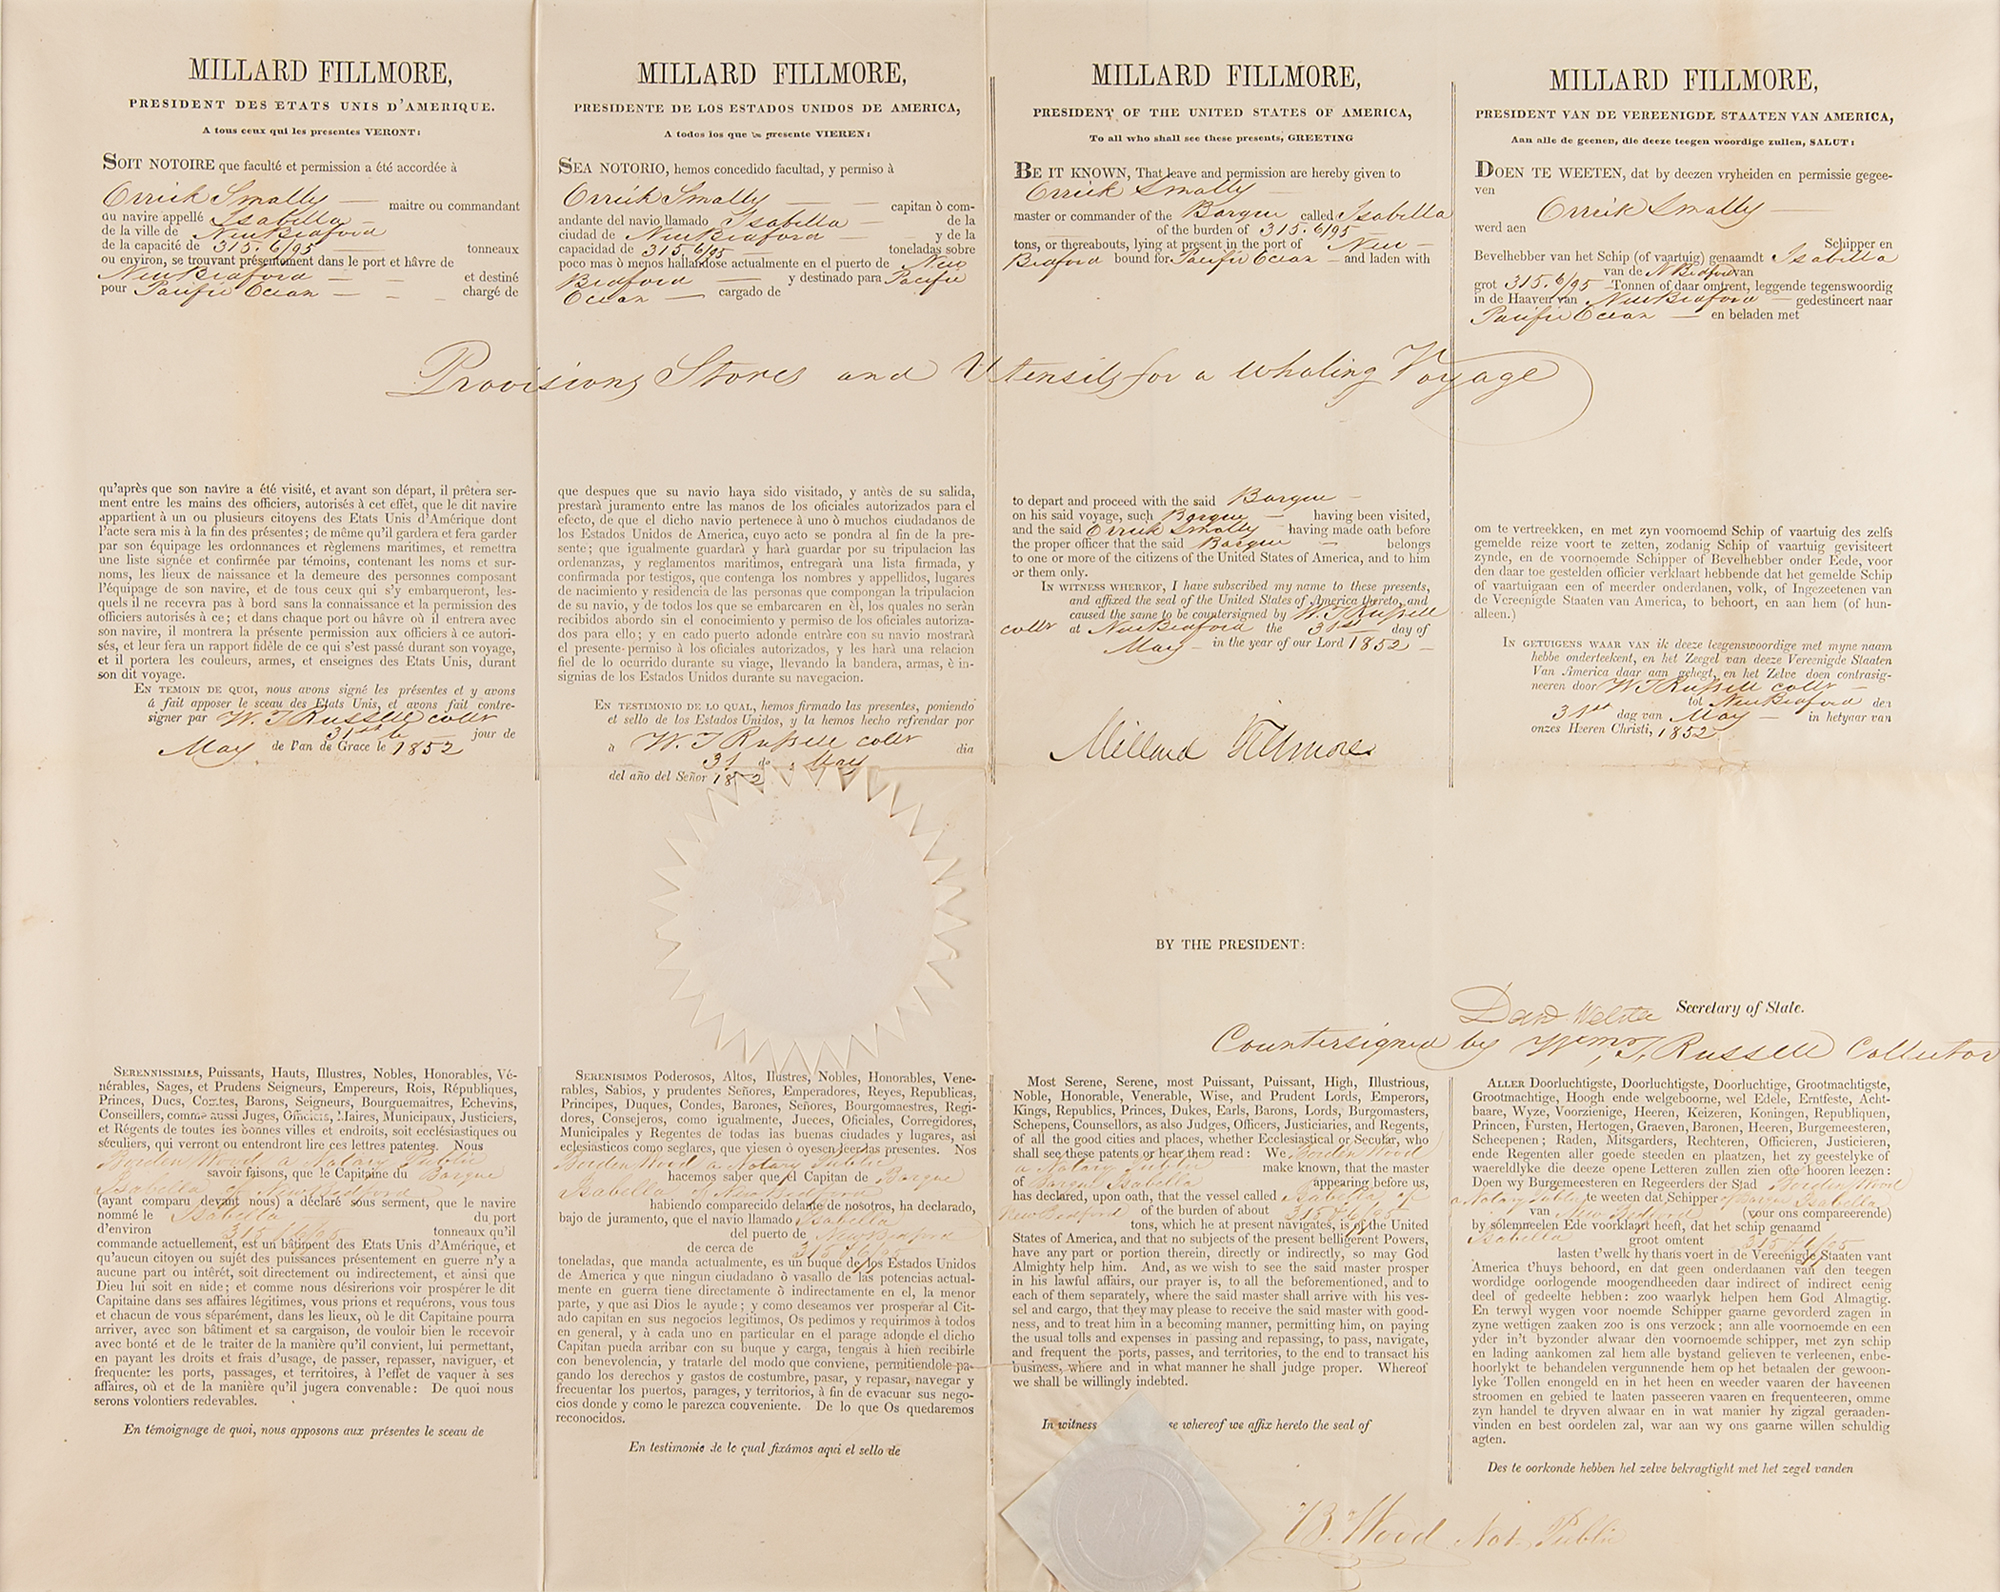 MILLARD FILLMORE,
PRESIDENT DES ETATS UNIS D'AMERIQUE.
A tous ceux qui les presentes VERONT:
SOIT NOTOIRE que faculté et permission a été accordée à
Orrick Smally maitre ou commandant
du navire appellé Isabella
de la ville de New Bedford
de la capacité de 315. 6/95 tonneaux
ou environ, se trouvant présentement dans le port et hâvre de
New Bedford et destiné
pour Pacific Ocean chargé de
MILLARD FILLMORE,
PRESIDENTE DE LOS ESTADOS UNIDOS DE AMERICA,
A todos los que presente VIEREN:
SEA NOTORIO, hemos concedido facultad, y permiso à
Orrick Smally capitan ò com-
andante del navio llamado Isabella de la
ciudad de New Bedford y de la
capacidad de 315 6/95 toneladas sobre
poco mas ò menos hallandose actualmente en el puerto de New
Bedford y destinado para Pacific
Ocean cargado de
MILLARD FILLMORE,
PRESIDENT OF THE UNITED STATES OF AMERICA,
To all who shall see these presents, GREETING
BE IT KNOWN, That leave and permission are hereby given to
Orrick Smally
master or commander of the Barque called Isabella
of the burden of 315. 6/95
tons, or thereabouts, lying at present in the port of New
Bedford bound for Pacific Ocean and laden with
MILLARD FILLMORE,
PRESIDENT VAN DE VEREENIGDE STAATEN VAN AMERICA,
Aan alle de geenen, die deeze teegen woordige zullen, SALUT:
DOEN TE WEETEN, dat by deezen vryheiden en permissie gegee-
ven
Orrick Smally
werd aen
Schipper en
Bevelhebber van het Schip (of vaartuig) genaamdt Isabella
van de N Bedford van
grot 315. 6/95 Tonnen of daar omtrent, leggende tegenswoordig
in de Haaven van New Bedford gedestineert naar
Pacific Ocean en beladen met
Provisions Stores and Utensils for a Whaling Voyage
qu'après que son navire a été visité, et avant son départ, il prêtera ser-
ment entre les mains des officiers, autorisés à cet effet, que le dit navire
appartient à un ou plusieurs citoyens des Etats Unis d'Amérique dont
l'acte sera mis à la fin des présentes; de même qu'il gardera et fera garder
par son équipage les ordonnances et règlemens maritimes, et remettra
une liste signée et confirmée par témoins, contenant les noms et sur-
noms, les lieux de naissance et la demeure des personnes composant
l'équipage de son navire, et de tous ceux qui s'y embarqueront, les-
quels il ne recevra pas à bord sans la connaissance et la permission des
officiers autorisés à ce; et dans chaque port ou hâvre où il entrera avec
son navire, il montrera la présente permission aux officiers à ce autori-
sés, et leur fera un rapport fidèle de ce qui s'est passé durant son voyage,
et il portera les couleurs, armes, et enseignes des Etats Unis, durant
son dit voyage.
EN TEMOIN DE QUOI, nous avons signé les présentes et y avons
à fait apposer le sceau des Etats Unis, et avons fait contre-
signer par W. T Russell collr
31st le jour de
May de l'an de Grace le 1852
que despues que su navio haya sido visitado, y antès de su salida,
prestarà juramento entre las manos de los oficiales autorizados para el
efecto, de que el dicho navio pertenece à uno ò muchos ciudadanos de
los Estados Unidos de America, cuyo acto se pondra al fin de la pre-
sente; que igualmente guardarà y harà guardar por su tripulacion las
ordenanzas, y reglamentos maritimos, entregarà una lista firmada, y
confirmada por testigos, que contenga los nombres y appellidos, lugares
de nacimiento y residencia de las personas que compongan la tripulacion
de su navio, y de todos los que se embarcaren en èl, los quales no seràn
recibidos abordo sin el conocimiento y permiso de los oficiales autoriza-
dos para ello; y en cado puerto adonde entràre con su navio mostrarà
el presente-permiso à los oficiales autorizados, y les harà una relacion
fiel de lo ocurrido durante su viage, llevando la bandera, armas, è in-
signias de los Estados Unidos durante su navegacion.
EN TESTIMONIO DE LO QUAL, hemos firmado las presentes, poniendo
et sello de los Estados Unidos, y la hemos hecho refrendar por
à W. T Russell collr dia
31 de May
del año del Señor 1852
to depart and proceed with the said Barque
on his said voyage, such Barque having been visited,
and the said Orrick Smally having made oath before
the proper officer that the said Barque belongs
to one or more of the citizens of the United States of America, and to him
or them only.
IN WITNESS WHEREOF, I have subscribed my name to these presents,
and affixed the seal of the United States of America thereto, and
caused the same to be countersigned by W. T. Russell
collr at New Bedford the 31st day of
May in the year of our Lord 1852
Millard Fillmore
om te vertreekken, en met zyn voornoemd Schip of vaartuig des zelfs
gemelde reize voort te zetten, zodanig Schip of vaartuig gevisiteert
zynde, en de voornoemde Schipper of Bevelhebber onder Eede, voor
den daar toe gestelden officier verklaart hebbende dat het gemelde Schip
of vaartuigaan een of meerder onderdanen, volk, of Ingezeetenen van
de Vereenigde Staaten van America, to behoort, en aan hem (of hun-
alleen.)
IN GETUIGENS WAAR VAN ik deeze teegenswoordige met myne naam
hebbe onderteekent, en het Zeegel van deeze Vereenigde Staaten
Van America daar aan gehegt, en het Zelve doen contrasig-
neeren door W T Russell collr
tot New Bedford den
31st dag van May in hetyaar van
onzes Heeren Christi, 1852
BY THE PRESIDENT:
Danl Webster Secretary of State.
Countersigned by Wm. T. Russell Collector
SERENNISSIMES, Puissants, Hauts, Illustres, Nobles, Honorables, Vé-
nérables, Sages, et Prudens Seigneurs, Empereurs, Rois, Républiques,
Princes, Ducs, Comtes, Barons, Seigneurs, Bourguemaitres, Echevins,
Conseillers, comme aussi Juges, Officiers, Maires, Municipaux, Justiciers,
et Régents de toutes les bonnes villes et endroits, soit ecclésiastiques ou
séculiers, qui verront ou entendront lire ces lettres patentes. Nous
Borden Wood a Notary Public
savoir faisons, que le Capitaine du Barque
Isabella of New Bedford
(ayant comparu devant nous) a déclaré sous serment, que le navire
nommé le Isabella du port
d'environ 315 & 6/95 tonneaux qu'il
commande actuellement, est un bâtiment des Etats Unis d'Amérique, et
qu'aucun citoyen ou sujét des puissances présentement en guerre n'y a
aucune part ou intérêt, soit directement ou indirectement, et ainsi que
Dieu lui soit en aide; et comme nous désirerions voir prospérer le dit
Capitaine dans ses affaires légitimes, vous prions et requérons, vous tous
et chacun de vous séparément, dans les lieux, où le dit Capitaine pourra
arriver, avec son bâtiment et sa cargaison, de vouloir bien le recevoir
avec bonté et de le traiter de la manière qu'il convient, lui permettant,
en payant les droits et frais d'usage, de passer, repasser, naviguer, et
frequenter les ports, passages, et territoires, à l'effet de vaquer à ses
affaires, où et de la manière qu'il jugera convenable: De quoi nous
serons volontiers redevables.
En témoignage de quoi, nous apposons aux présentes le sceau de
SERENISIMOS Poderosos, Altos, Illustres, Nobles, Honorables, Vene-
rables, Sabios, y prudentes Señores, Emperadores, Reyes, Republicas,
Principes, Duques, Condes, Barones, Señores, Bourgomaestres, Regi-
dores, Consejeros, como igualmente, Jueces, Oficiales, Corregidores,
Municipales y Regentes de todas las buenas ciudades y lugares, asi
eclesiasticos como seglares, que viesen ò oyesen leer las presentes. Nos
Borden Wood a Notary Public
hacemos saber que el Capitan de Barque
Isabella of New Bedford
habiendo comparecido delante de nosotros, ha declarado,
bajo de juramento, que el navio llamado Isabella
del puerto de New Bedford
de cerca de 315 & 6/95
toneladas, que manda actualmente, es un buque de los Estados Unidos
de America y que ningun ciudadano ò vasallo de las potencias actual-
mente en guerra tiene directamente ò indirectamente en el, la menor
parte, y que asi Dios le ayude; y como deseamos ver prosperar al Cit-
ado capitan en sus negocios legitimos, Os pedimos y requirimos à todos
en general, y à cada uno en particular en el parage adonde el dicho
Capitan pueda arribar con su buque y carga, tengais à hien recibirle
con benevolencia, y tratarle del modo que conviene, permitiendole pa-
gando los derechos y gastos de costumbre, pasar, y repasar, navegar y
frecuentar los puertos, parages, y territorios, à fin de evacuar sus nego-
cios donde y como le parezca conveniente. De lo que Os quedaremos
reconocidos.
En testimonio de lo qual fixámos aqui el sello de
Most Serene, Serene, most Puissant, Puissant, High, Illustrious,
Noble, Honorable, Venerable, Wise, and Prudent Lords, Emperors,
Kings, Republics, Princes, Dukes, Earls, Barons, Lords, Burgomasters,
Schepens, Counsellors, as also Judges, Officers, Justiciaries, and Regents,
of all the good cities and places, whether Ecclesiastical or Secular, who
shall see these patents or hear them read: We Borden Wood
a Notary Public make known, that the master
of Barque Isabella appearing before us,
has declared, upon oath, that the vessel called Isabella of
New Bedford of the burden of about 315 & 6/95
tons, which he at present navigates, is of the United
States of America, and that no subjects of the present belligerent Powers,
have any part or portion therein, directly or indirectly, so may God
Almighty help him. And, as we wish to see the said master prosper
in his lawful affairs, our prayer is, to all the beforementioned, and to
each of them separately, where the said master shall arrive with his ves-
sel and cargo, that they may please to receive the said master with good-
ness, and to treat him in a becoming manner, permitting him, on paying
the usual tolls and expenses in passing and repassing, to pass, navigate,
and frequent the ports, passes, and territories, to the end to transact his
business, where and in what manner he shall judge proper. Whereof
we shall be willingly indebted.
In witness whereof we affix hereto the seal of
ALLER Doorluchtigste, Doorluchtigste, Doorluchtige, Grootmachtigste,
Grootmachtige, Hoogh ende welgeboorne, wel Edele, Erntfeste, Acht-
baare, Wyze, Voorzienige, Heeren, Keizeren, Koningen, Republiquen,
Princen, Fursten, Hertogen, Graeven, Baronen, Heeren, Burgemeesteren,
Scheepenen; Raden, Mitsgarders, Rechteren, Officieren, Justicieren,
ende Regenten aller goede steeden en plaatzen, het zy geestelyke of
waereldlyke die deeze opene Letteren zullen zien ofte hooren leezen:
Doen wy Burgemeesteren en Regeerders der Stad Borden Wood
a Notary Public te weeten dat Schipper of Barque Isabella
van New Bedford (vour ons compareerende)
by solemneelen Ede voorklaart heeft, dat het schip genaamd
Isabella groot omtent 315 & 6/95
lasten t'welk hy thans voert in de Vereenigde Staaten vant
America t'huys behoord, en dat geen onderdaanen van den teegen
wordidge oorlogende moogendheeden daar indirect of indirect eenig
deel of gedeelte hebben: zoo waarlyk helpen hem God Almagtig.
En terwyl wygen voor noemde Schipper gaarne gevorderd zagen in
zyne wettigen zaaken zoo is ons verzock; ann alle voornoemde en een
yder in't byzonder alwaar den voornoemde schipper, met zyn schip
en lading aankomen zal hem alle bystand gelieven te verleenen, enbe-
hoorlykt te behandelen vergunnende hem op het betaalen der gewoon-
lyke Tollen enongeld en in het heen en weeder vaaren der haveenen
stroomen en gebied te laaten passeeren vaaren en frequenteeren, omme
zyn handel te dryven alwaar en in wat manier hy zigzal geraaden-
vinden en best oordelen zal, war aan wy ons gaarne willen schuldig
agten.
Des te oorkonde hebben hel zelve bekragtight met het zegel vanden
B. Wood Not. Public